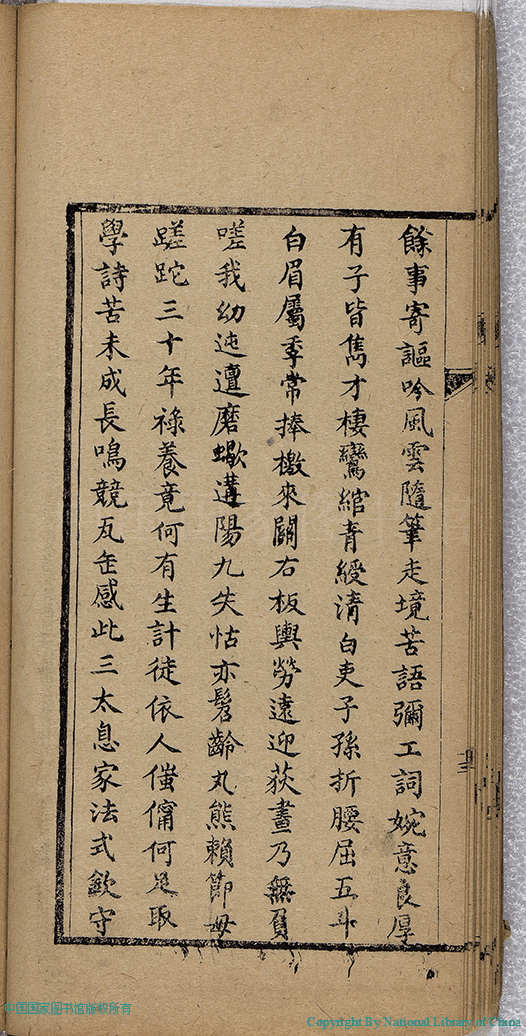 餘事寄謳吟風雲隨筆走境苦語彌工詞婉意良厚
有子皆雋才棲鸞綰青綬清白吏子孫折腰屈五斗
白眉屬季常捧檄來關右板輿勞遠迎荻畫乃無負
嗟我幼迍邅磨蝎遘陽九失怙亦髫齡丸熊賴節母
蹉跎三十年祿養竟何有生計徒依人傭何足取
學詩苦未成長鳴競瓦缶感此三太息家法式欽守
中国国家图书馆版权所有
Copyright By National Library of China